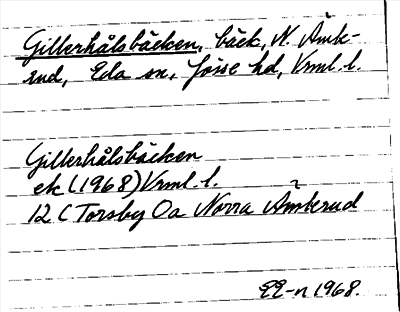 Gillerhålsbäcken, bäck, N. Åmk-
rud, Eda sn, Jösse hd, Vrml. l.
Gillerhålsbäcken
ek (1968) Vrml. l.
12 C Torsby Oa Norra Åmkerud
EE-n 1968.